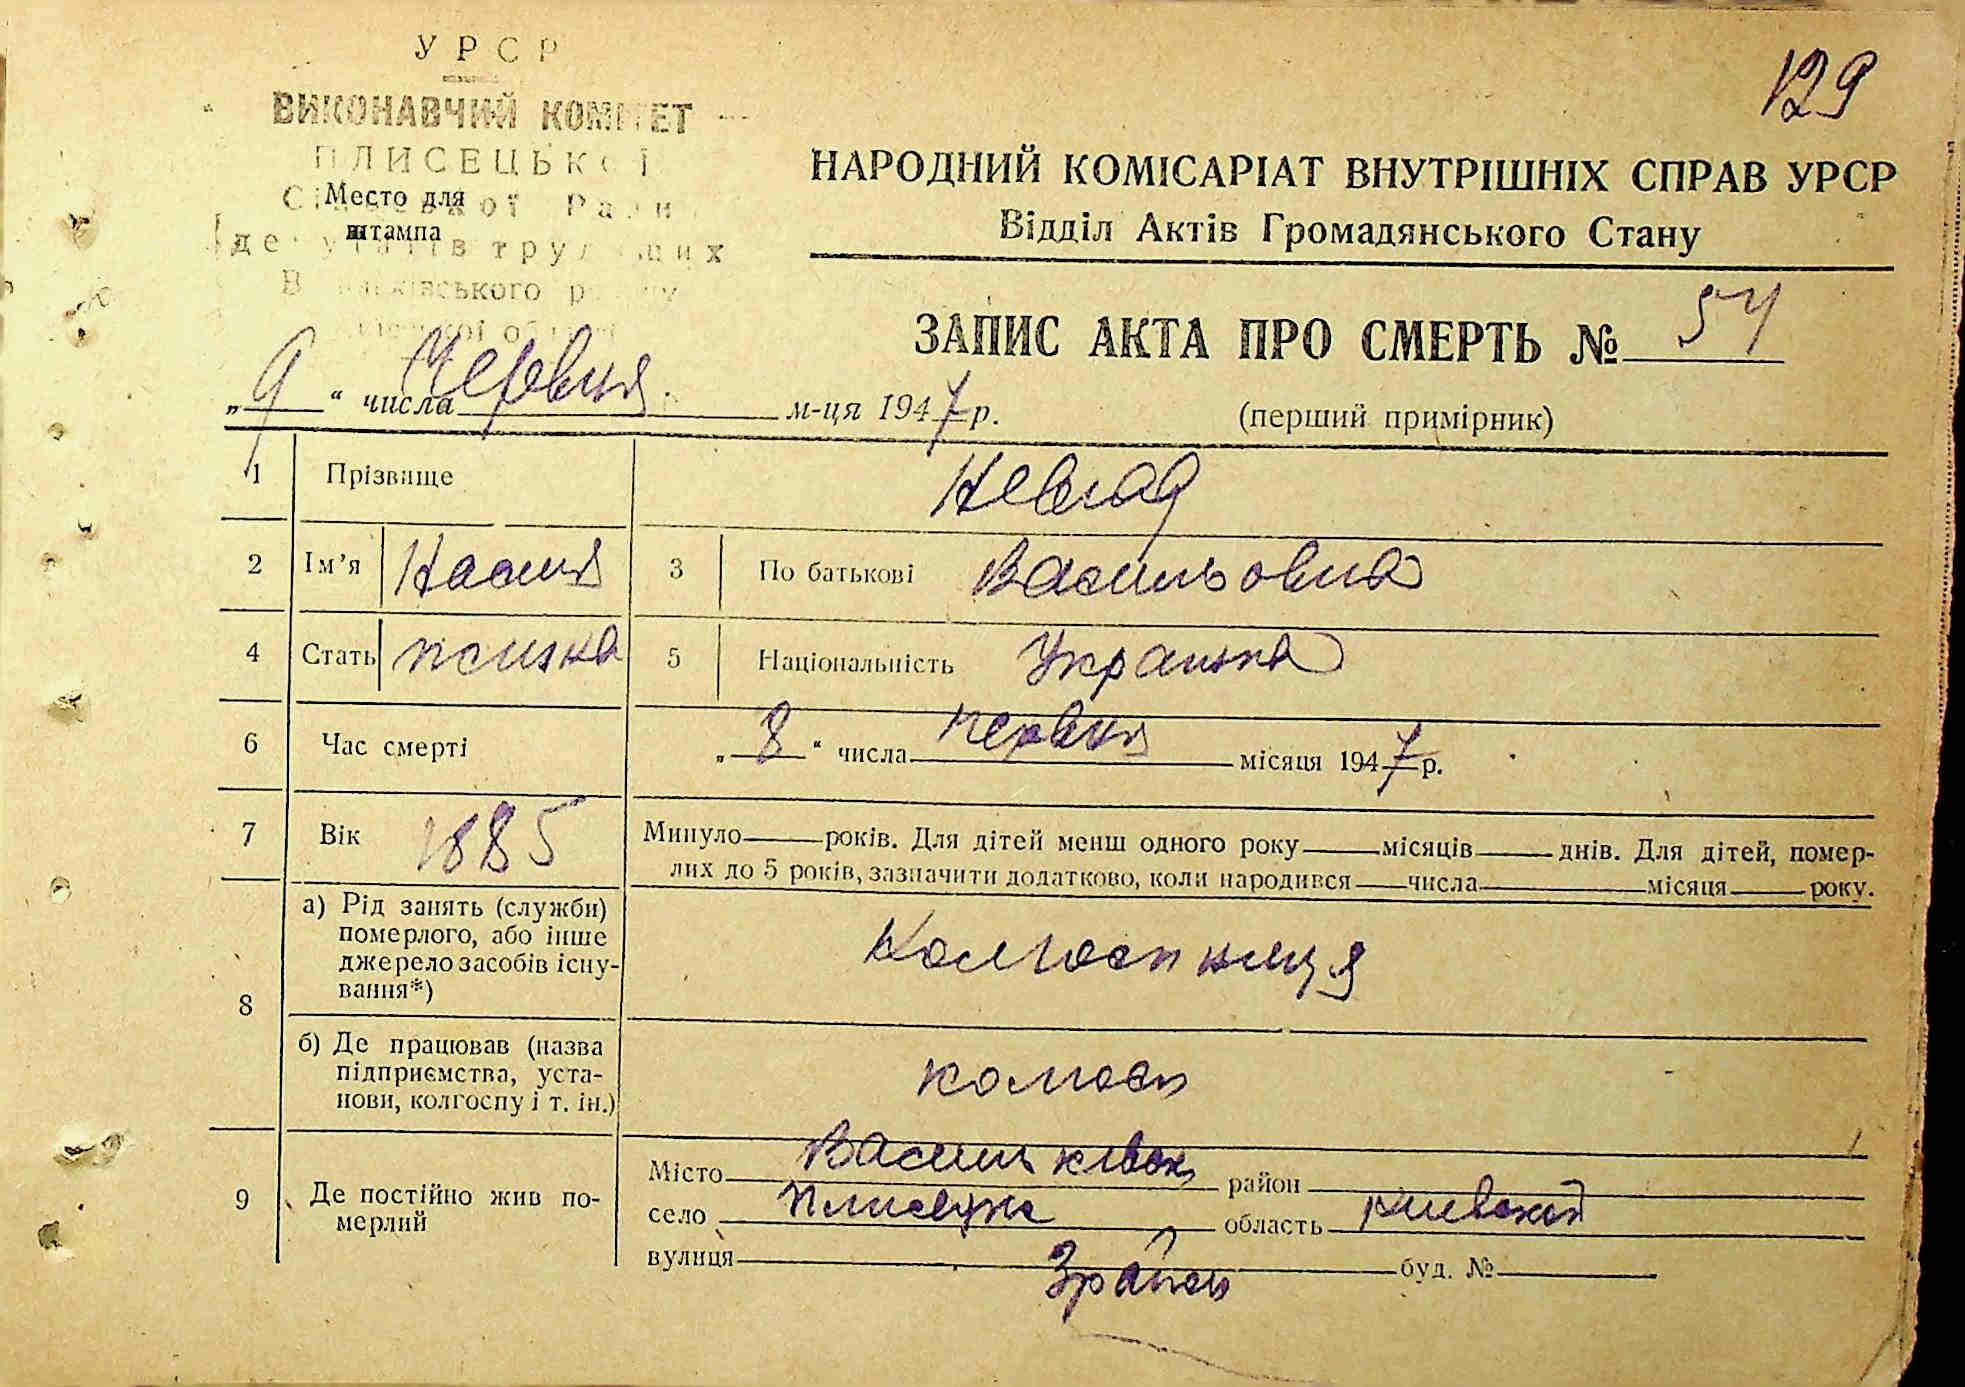 УРСР
ВИКОНАВЧИЙ КОМІТЕТ
ПЛИСЕЦЬКОЇ
Сільської Ради
Место для
штампа
депутатів трудящих
129
НАРОДНИЙ КОМІСАРІАТ ВНУТРІШНІХ СПРАВ УРСР
Відділ Актів Громадянського Стану
ЗАПИС АКТА ПРО СМЕРТЬ № 54
„9“ числа Червня м-ця 1947 р.
(перший примірник)
1 Прізвище
2 Ім’я 3 По батькові Васильовна
4 Стать жінка 5 Національність Українка
6 Час смерті „8“ числа червня місяця 1947 р.
7 Вік 1885 Минуло років. Для дітей менш одного року місяців днів. Для дітей, помер-
лих до 5 років, зазначити додатково, коли народився числа місяця року.
8 а) Рід занять (служби)
померлого, або інше
джерело засобів існу-
вання*) Колгоспниця
б) Де працював (назва
підприємства, уста-
нови, колгоспу і т. ін.) колгосп
9 Де постійно жив по-
мерлий
Місто Васильківськ район
село Плисецке область Киевской
вулиця буд. №